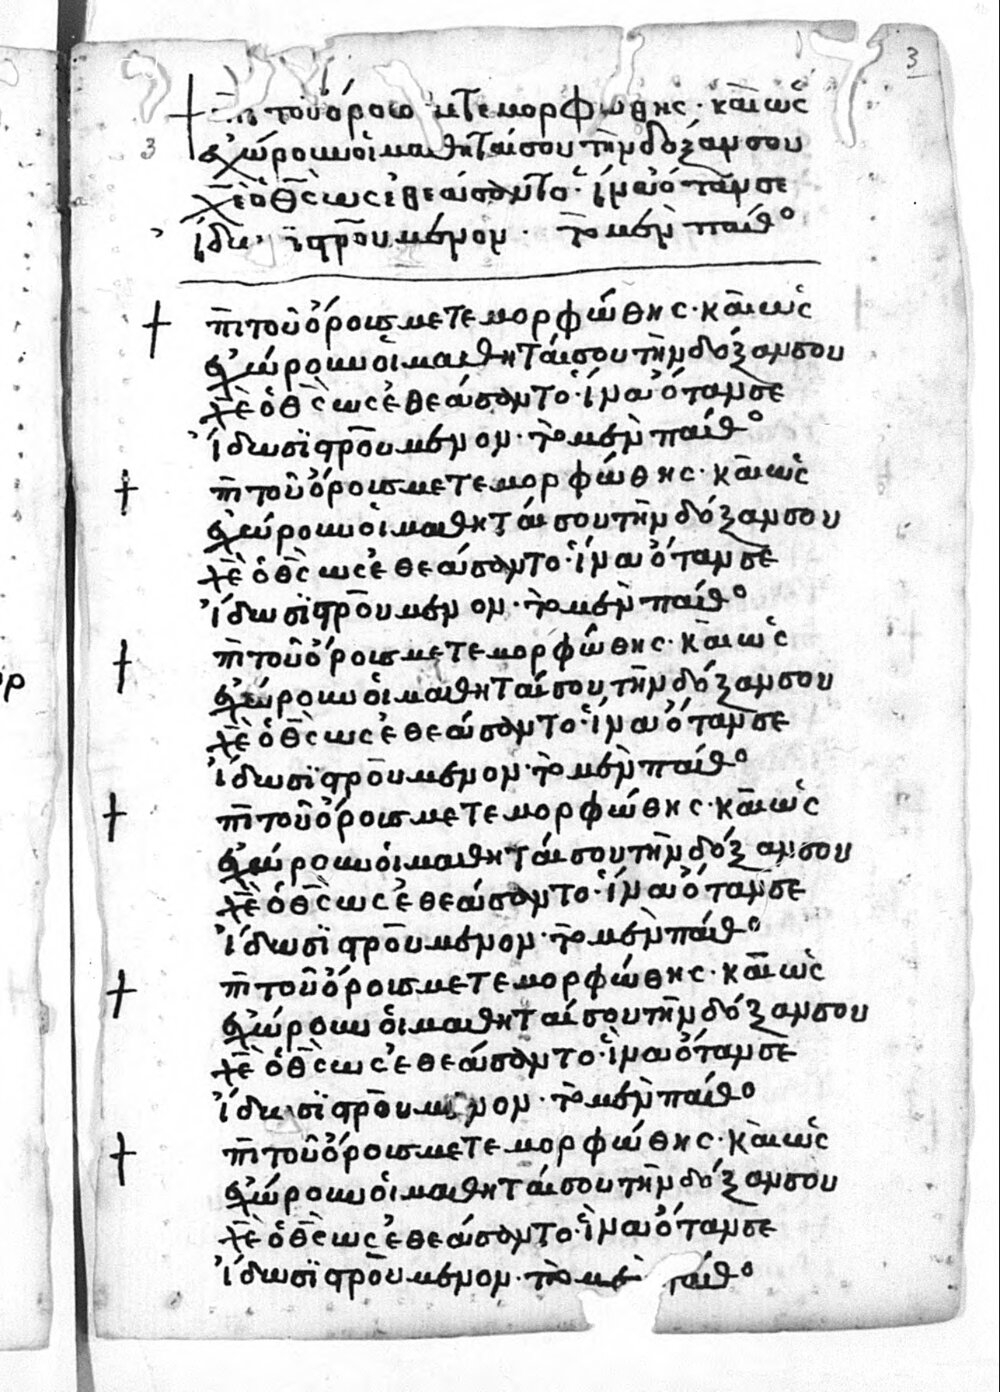 3
† πι τοῦ ὄρους μετεμορφώθης· καὶ ὡς
3
ἐχώρουν οἱ μαθηταί σου τὴν δόξαν σου
χὲ ὁ θς ὡς ἐθεάσαντο· ἵνα ὅταν σε
ἴδωσι στρουμένον· τὸ μὲν πάθο
† πι τοῦ ὄρους μετεμορφώθης· καὶ ὡς
ἐχώρουν οἱ μαθηταί σου τὴν δόξαν σου
χὲ ὁ θς ὡς ἐθεάσαντο· ἵνα ὅταν σε
ἴδωσι στρουμένον· τὸ μὲν πάθο
† πι τοῦ ὄρους μετεμορφώθης· καὶ ὡς
ἐχώρουν οἱ μαθηταί σου τὴν δόξαν σου
χὲ ὁ θς ὡς ἐθεάσαντο· ἵνα ὅταν σε
ἴδωσι στρουμένον· τὸ μὲν πάθο
† πι τοῦ ὄρους μετεμορφώθης· καὶ ὡς
ἐχώρουν οἱ μαθηταί σου τὴν δόξαν σου
χὲ ὁ θς ὡς ἐθεάσαντο· ἵνα ὅταν σε
ἴδωσι στρουμένον· τὸ μὲν πάθο
† πι τοῦ ὄρους μετεμορφώθης· καὶ ὡς
ἐχώρουν οἱ μαθηταί σου τὴν δόξαν σου
χὲ ὁ θς ὡς ἐθεάσαντο· ἵνα ὅταν σε
ἴδωσι στρουμένον· τὸ μὲν πάθο
† πι τοῦ ὄρους μετεμορφώθης· καὶ ὡς
ἐχώρουν οἱ μαθηταί σου τὴν δόξαν σου
χὲ ὁ θς ὡς ἐθεάσαντο· ἵνα ὅταν σε
ἴδωσι στρουμένον· τὸ μὲν πάθο
† πι τοῦ ὄρους μετεμορφώθης· καὶ ὡς
ἐχώρουν οἱ μαθηταί σου τὴν δόξαν σου
χὲ ὁ θς ὡς ἐθεάσαντο· ἵνα ὅταν σε
ἴδωσι στρουμένον· τὸ μὲ πάθο